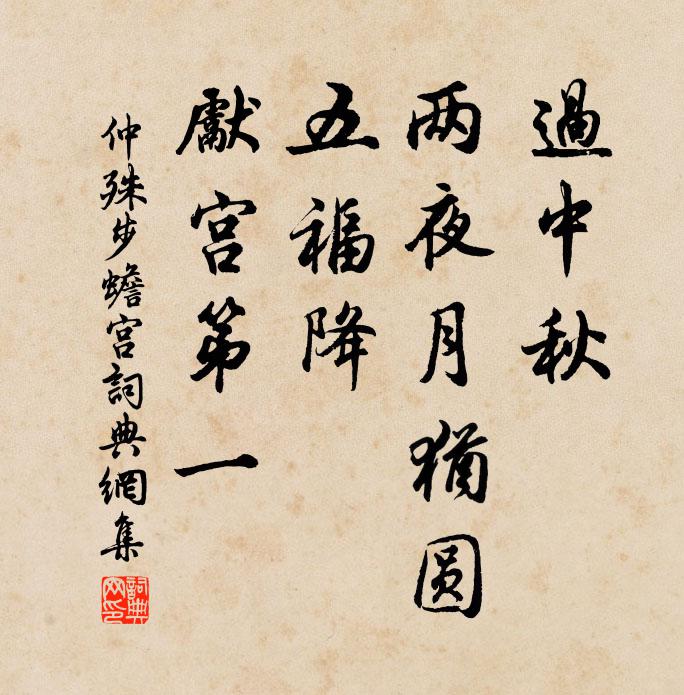 過中秋
两夜月猶圆
五福降
獻宫第一
仲殊步蟾宫詞典網集
詞典
网印